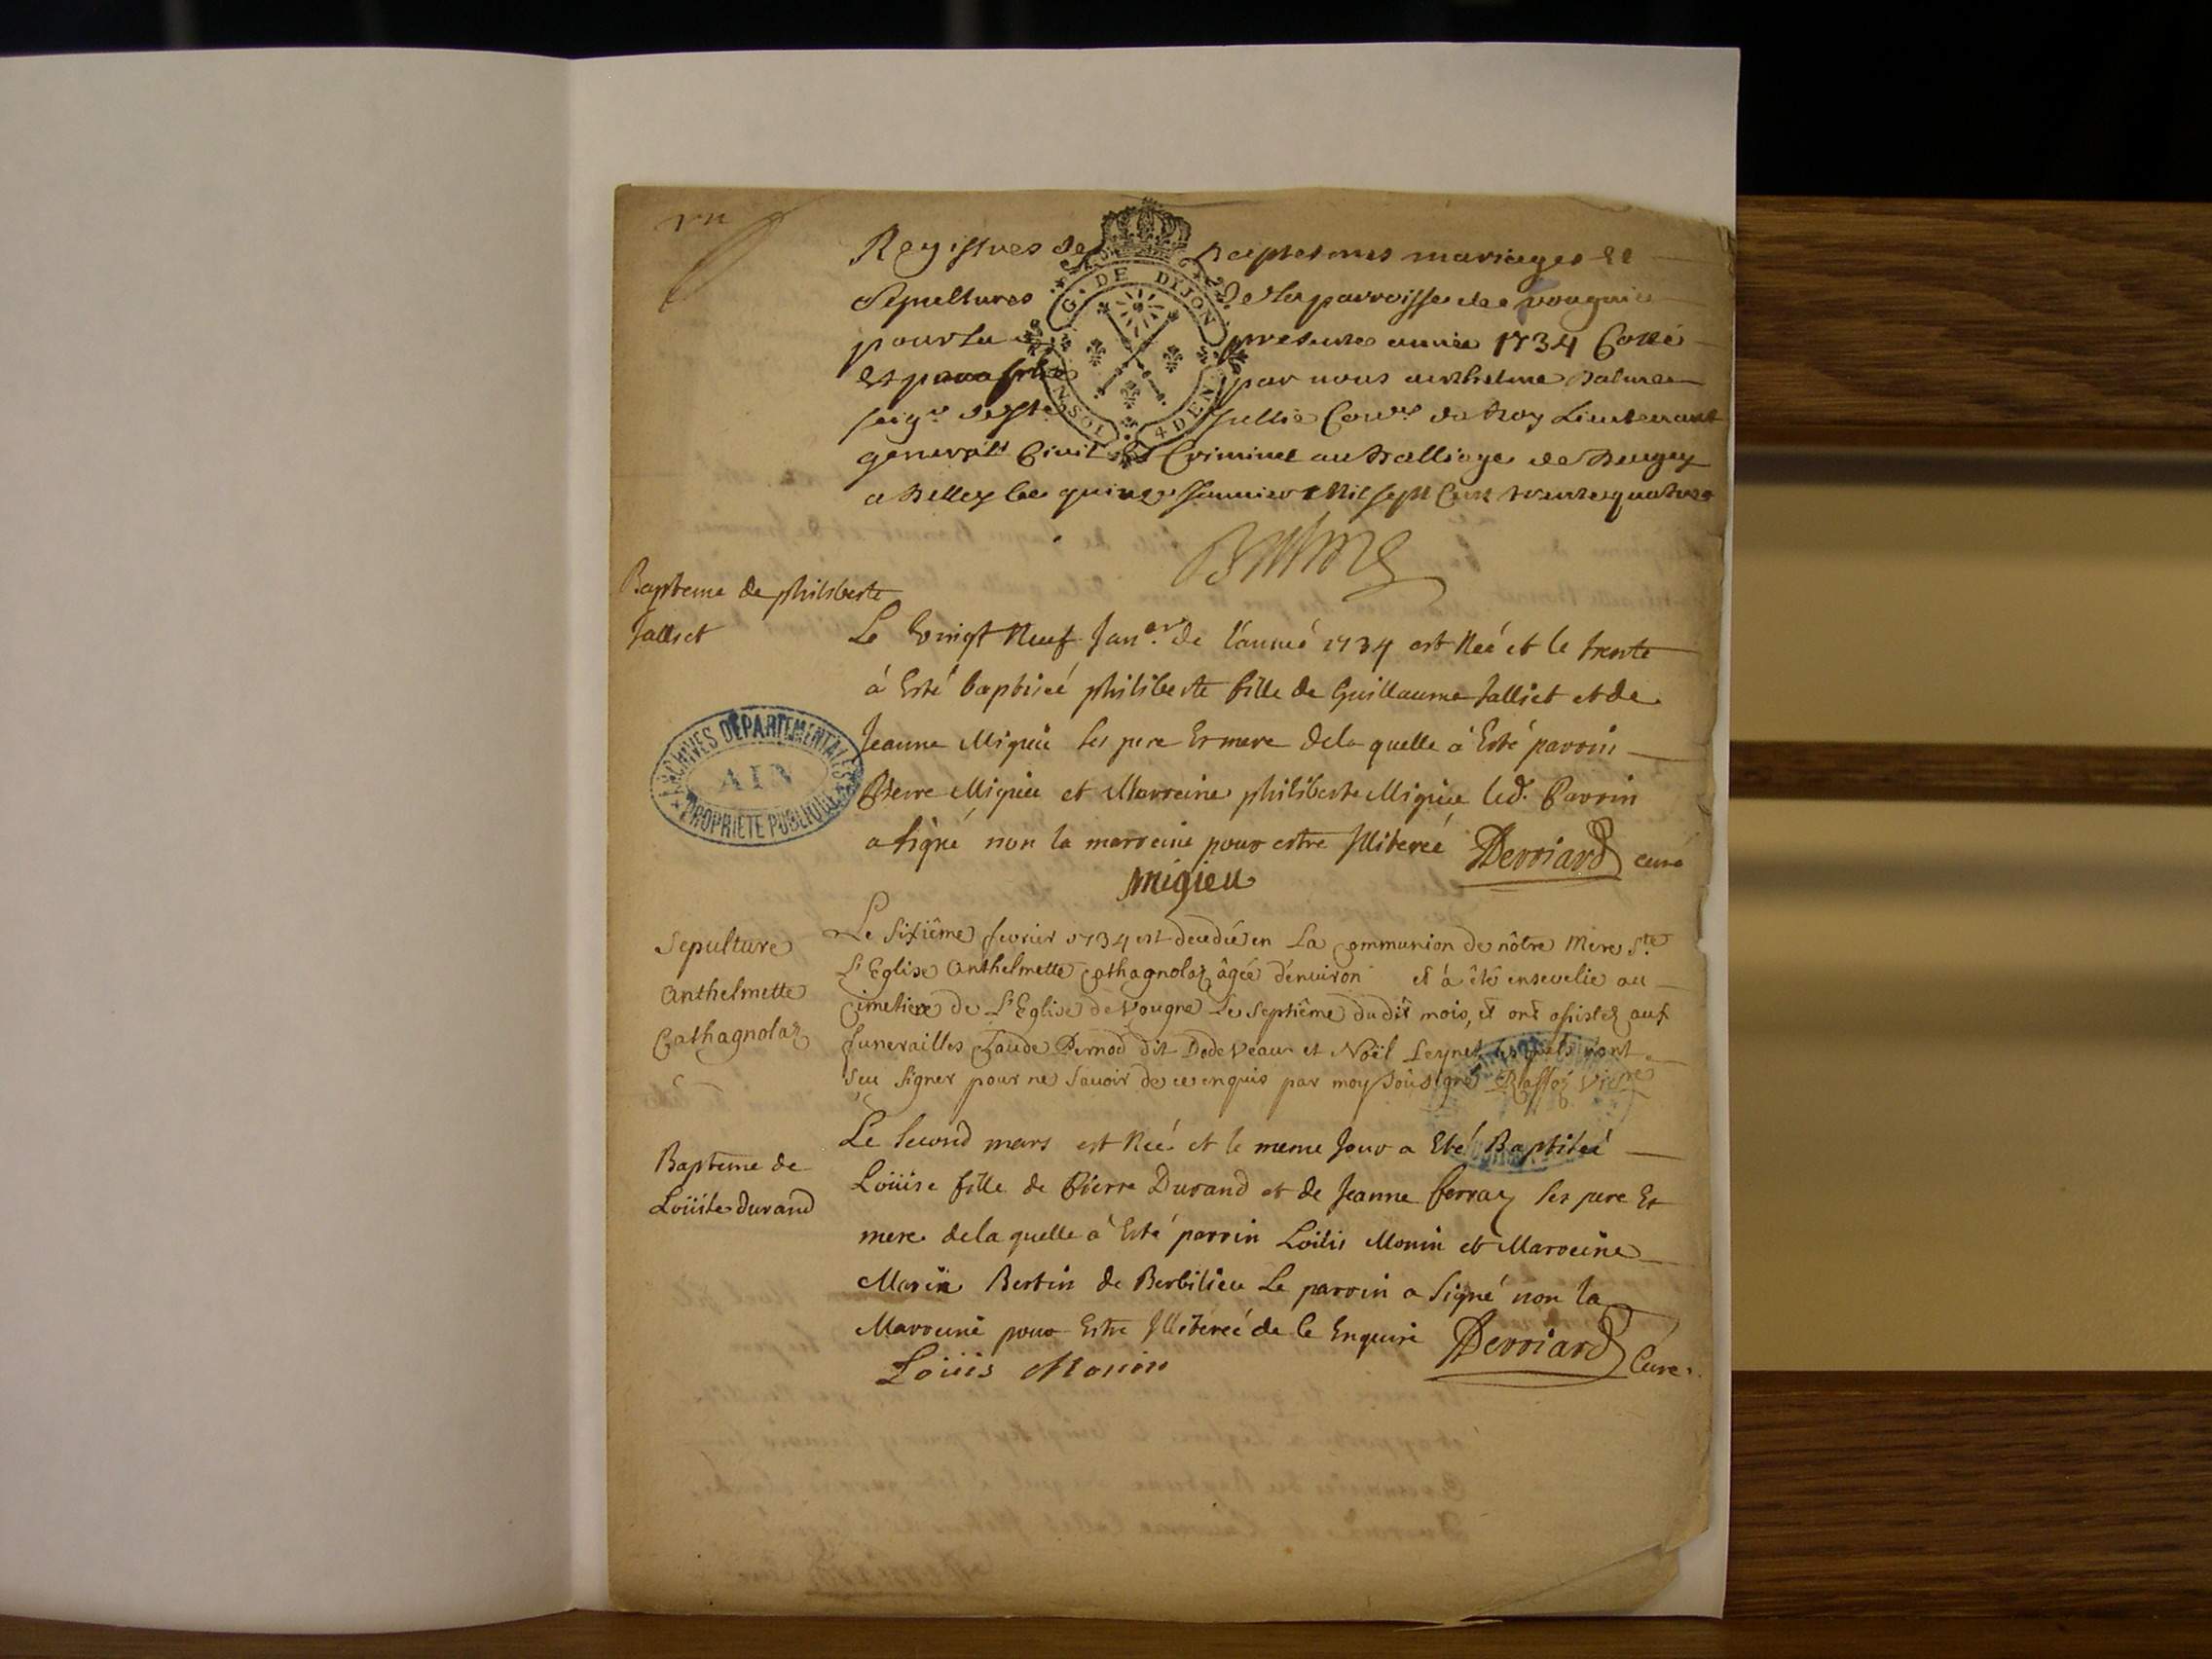 vn
Registres des Baptesmes mariages et
Sepultures De la parroisse de vougnie
pour la presente année 1734 Cotté
et paraphé par nous anthelme Balme
seigr de Ste Jullie Conr du Roy Lieutenant
general Civil et Criminel au Balliage de Beugey
a Belley le quinze Janvier Mil sept Cent trente quatre
G. DE DIJON
UN SOL 4 DEN
Balme
Bapteme de philiberte
Jalliet
Le vingt Neuf Janer. de l'anné 1734 est Neé et le trente
á Esté baptiseé philiberte fille de Guillaume Jalliet et de
Jeanne Migieu ses pere Et mere de la quelle á Esté parrin
Pierre Migieu et Marreine philiberte Migieu led. Parrin
a signé non la marreine pour estre Illitereé Derriard curé
migieu
ARCHIVES DÉPARTEMENTALES
AIN
PROPRIÉTÉ PUBLIQUE
Sepulture
Anthelmette
Cathagnolaz
Le Sixiême fevrier 1734 est decedeé en La Communion de nôtre Mere Ste
L'Eglise Anthelmette Cathagnolaz âgeé d'environ et a êté ensevelie au
Cimetiere de L'Eglise de Vougne Le Septiême du dit mois, et ont assistez aux
funerailles Claude Pernod dit Dode Veau et Noël Leynet lesquels n'ont
sceu signer pour ne savoir de ce enquis par moy soûsigné Rassoz Vicre
Bapteme de
Loüise durand
Le second mars est Neé et le meme Jour a Eté Baptiseé
Loüise fille de Pierre Durand et de Jeanne ferraz ses pere Et
mere de la quelle á Esté parrin Loüis Monin et Marreine
Marie Bertin de Berbilieu Le parrin a signé non la
Marreine pour Estre Illitereé de ce Enquise Derriard Curé
Loüis Monin